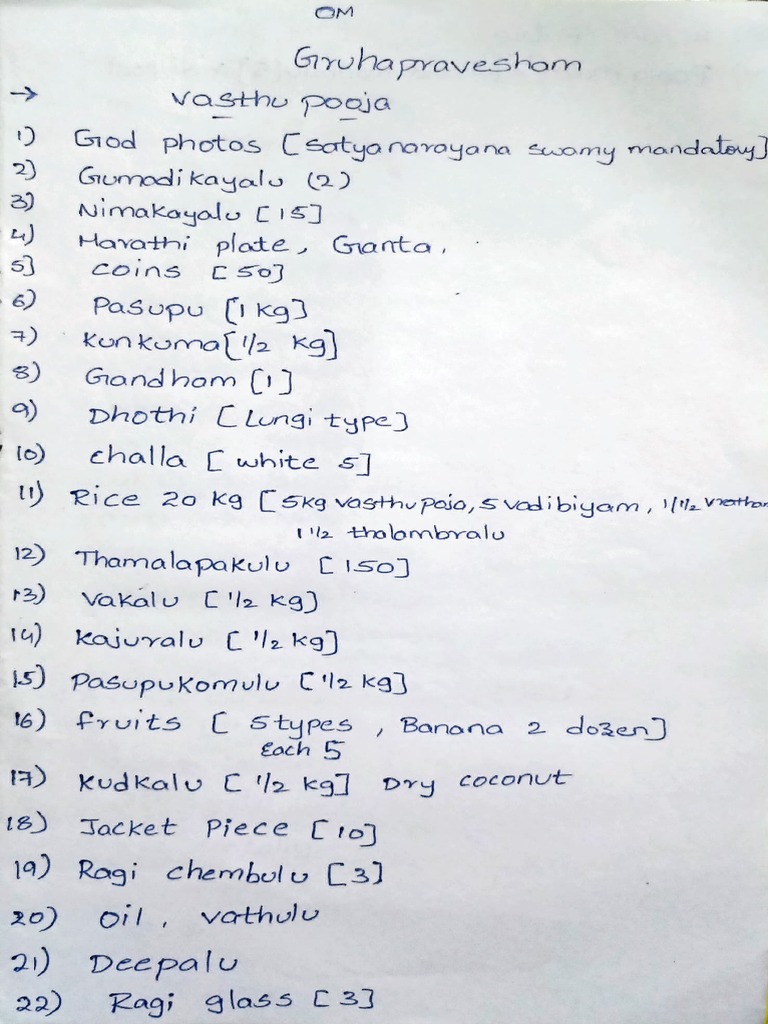 OM
Gruhapravesham
→ vasthu pooja
1) God photos [satyanarayana swamy mandatory]
2) Gumadikayalu (2)
3) Nimakayalu [15]
4) Harathi plate, Ganta,
5] coins [50]
6) Pasupu [1 kg]
7) Kunkuma [1/2 kg]
8) Gandham [1]
9) Dhothi [Lungi type]
10) challa [white 5]
11) Rice 20 kg [5kg vasthu poja, 5 vadibiyam, 1/1/2 vratham
1 1/2 thalambralu
12) Thamalapakulu [150]
13) Vakalu [1/2 kg]
14) Kajuralu [1/2 kg]
15) Pasupukomulu [1/2 kg]
16) fruits [5 types, Banana 2 dozen]
Each 5
17) Kudkalu [1/2 kg] Dry coconut
18) Jacket Piece [10]
19) Ragi chembulu [3]
20) Oil, vathulu
21) Deepalu
22) Ragi glass [3]